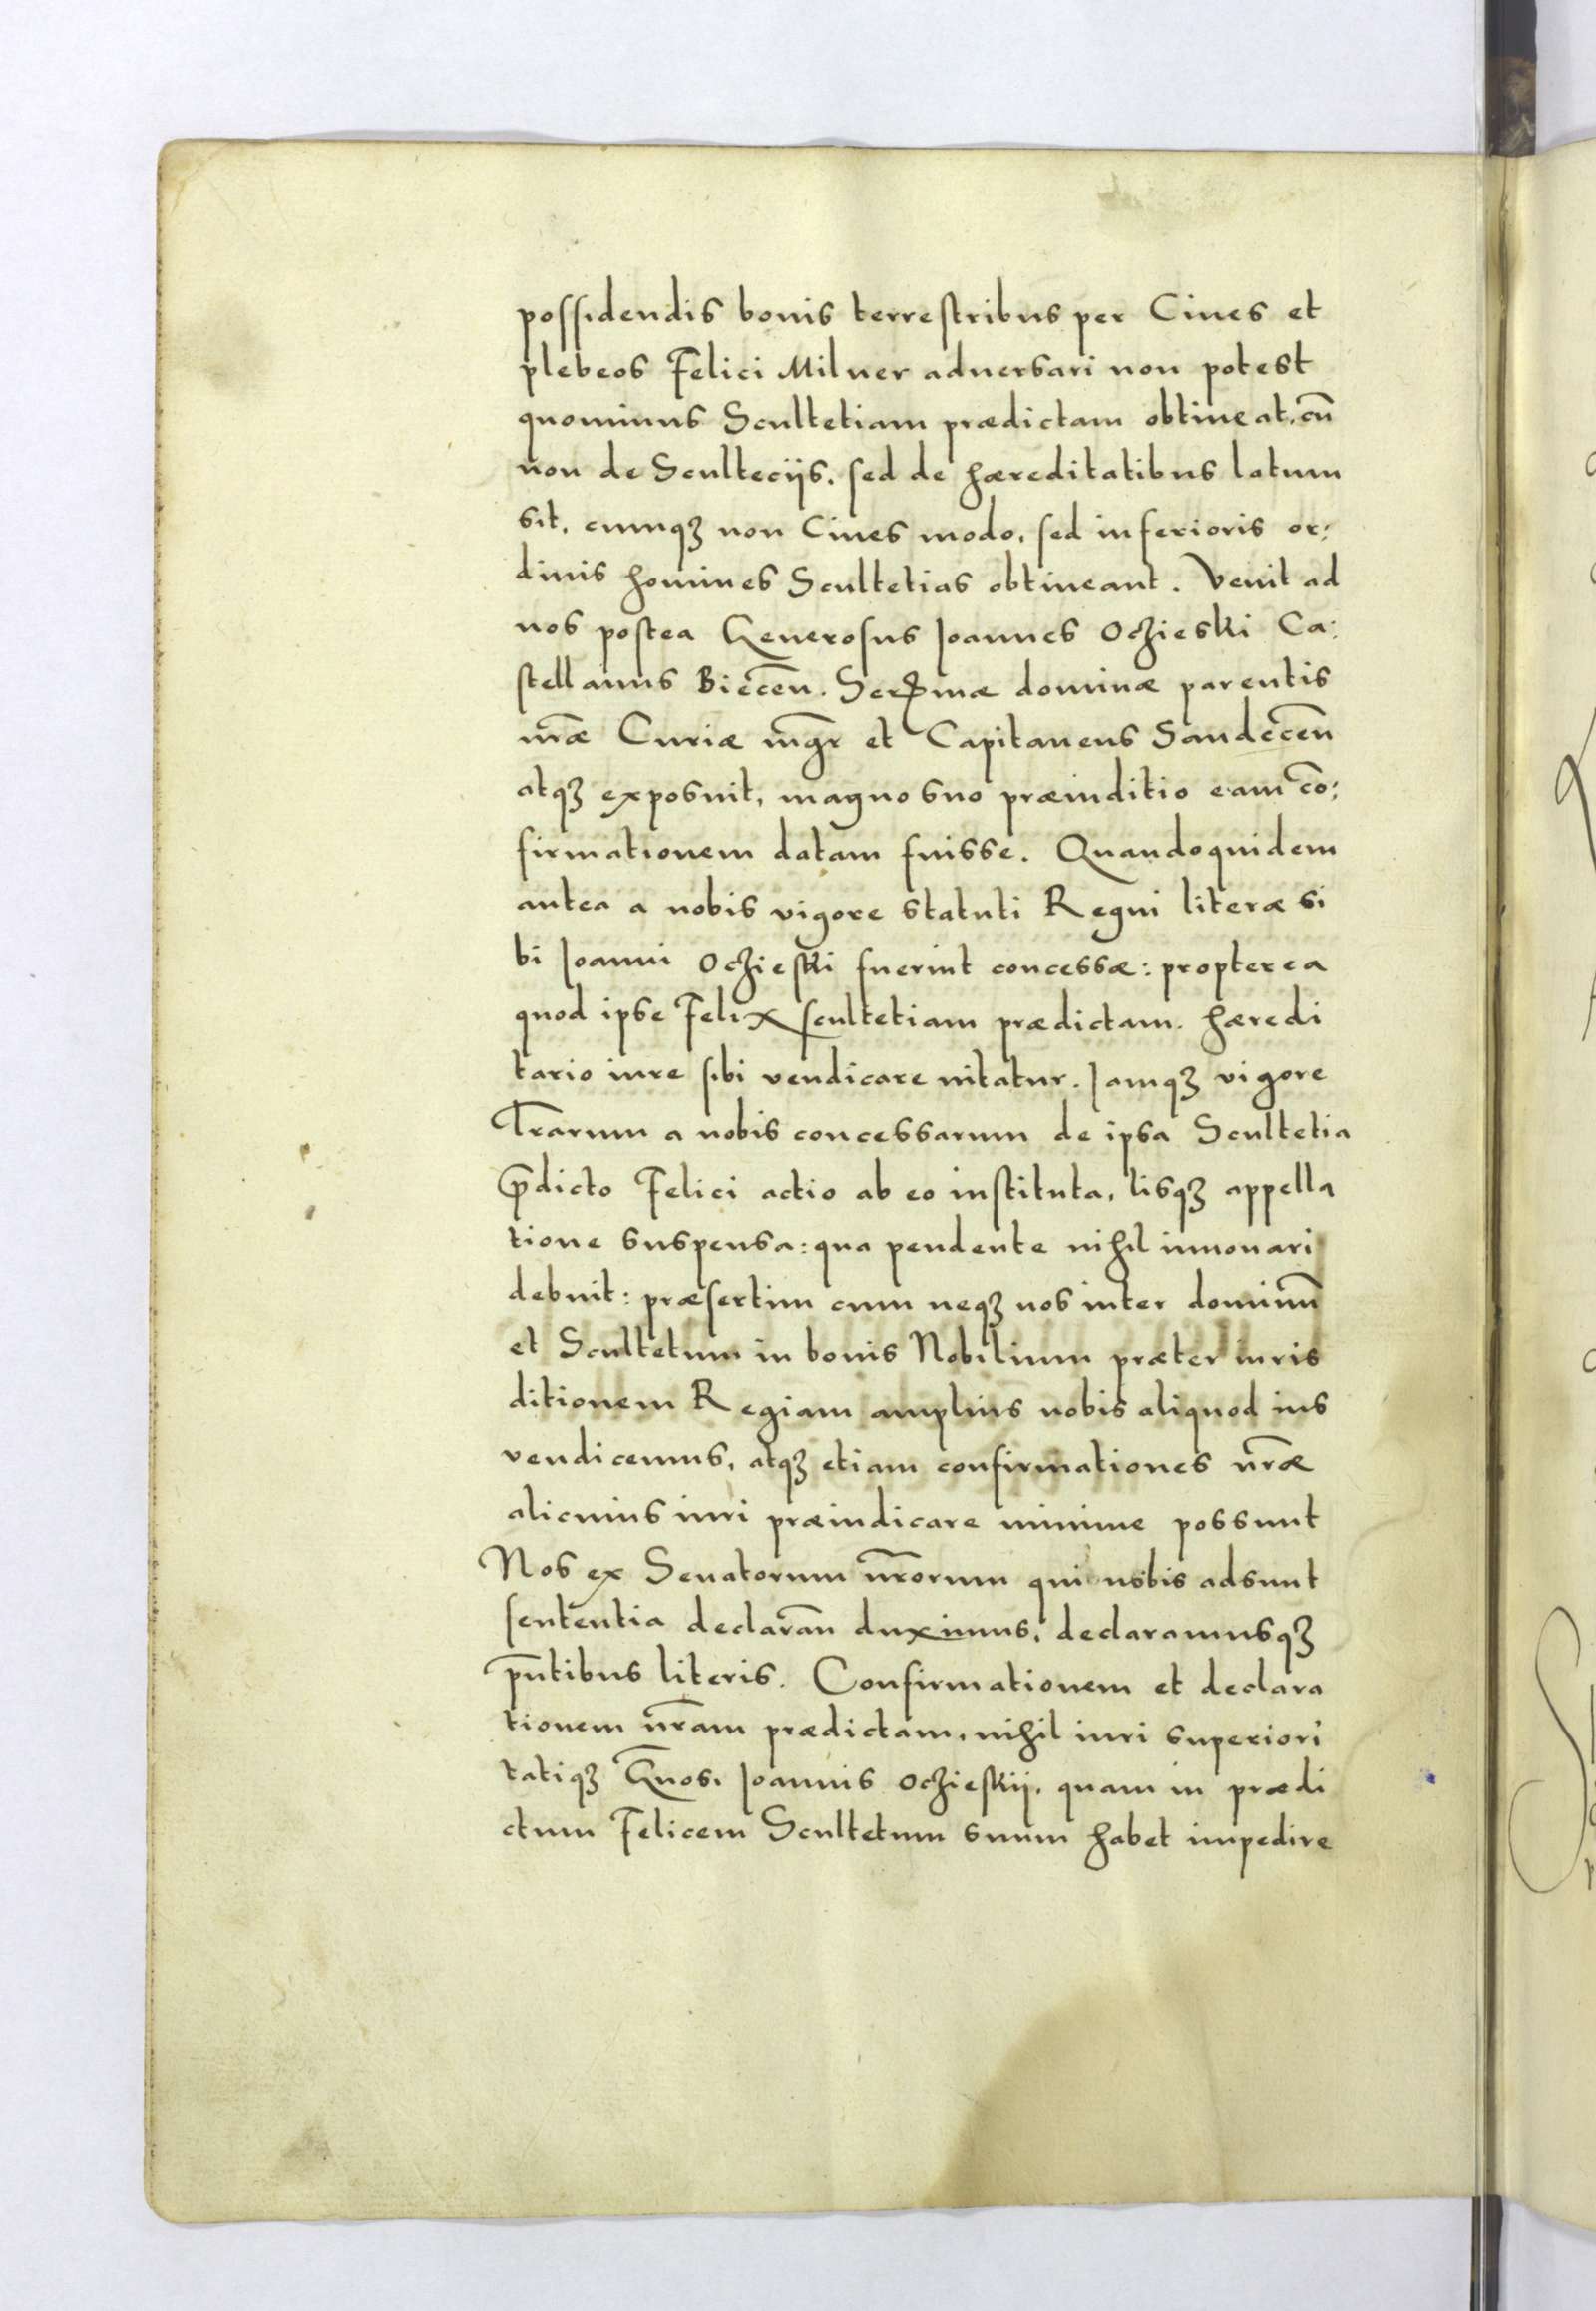 possidendis bonis terrestribus per Ciues et
plebeos Felici Milner aduersari non potest
quominus Scultetiam prædictam obtineat, cũ
non de Sculteciis, sed de hæreditatibus latum
sit, cumqꝫ non Ciues modo, sed inferioris or:
dinis homines Scultetias obtineant. Venit ad
nos postea Generosus Joannes Oczieski Ca:
stellanus Biecen̄. Ser̄mæ dominæ parentis
nr̄æ Curiæ mgr̄ et Capitaneus Sandecen̄
atqꝫ exposuit, magno suo præiuditio eam cō:
firmationem datam fuisse. Quandoquidem
antea a nobis vigore statuti Regni literæ si
bi Joanni Oczieski fuerint concessæ: propterea
quod ipse Felix scultetiam prædictam hæredi
tario iure sibi vendicare nitatur. Jamqꝫ vigore
lr̄arum a nobis concessarum de ipsa Scultetia
p̄dicto Felici actio ab eo instituta, lisqꝫ appella
tione suspensa: qua pendente nihil innouari
debuit: præsertim cum neqꝫ nos inter dominū
et Scultetum in bonis Nobilium præter iuris
ditionem Regiam amplius nobis aliquod ius
vendicemus, atqꝫ etiam confirmationes nr̄æ
alicuius iuri præiudicare minime possunt
Nos ex Senatorum nr̄orum qui nobis adsunt
sententia declaran̄ duximus, declaramusqꝫ
pn̄tibus literis. Confirmationem et declara
tionem nr̄am prædictam, nihil iuri superiori
tatiqꝫ Gn̄os. Joannis Oczieskij, quam in prædi
ctum Felicem Scultetum suum habet impedire